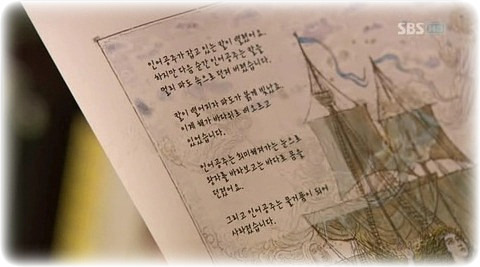 SBS
인어공주가 잡고 있는 칼이 떨렸어요.
하지만 다음 순간 인어공주는 칼을
멀리 파도 속으로 던져 버렸습니다.
칼이 떨어지자 파도가 붉게 빛났고
이제 해가 바다위로 떠오르고
있었습니다.
인어공주는 희미해져가는 눈으로
왕자를 바라보고는 바다로 몸을
던졌어요.
그리고 인어공주는 물거품이 되어
사라졌습니다.